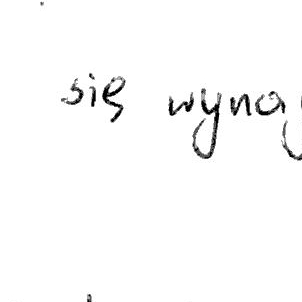 się wyna